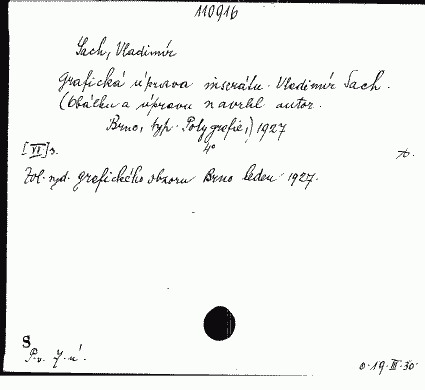 110916
Sach, Vladimír
Grafická úprava inserátu. Vladimír Sach.
(Obálku a úpravu navrhl autor.
Brno, typ. Polygrafie,) 1927
[VI]s. 4°
Zvl. vyd. grafického obzoru Brno leden 1927.
S
P.v. 7.ú.
0.19.III.30.